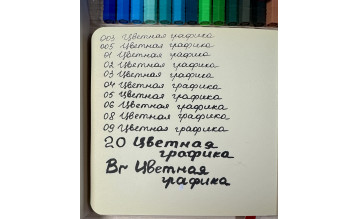 003 Цветная графика
005 Цветная графика
01 Цветная графика
02 Цветная графика
03 Цветная графика
04 Цветная графика
05 Цветная графика
06 Цветная графика
08 Цветная графика
09 Цветная графика
20 Цветная
графика
Br Цветная
графика